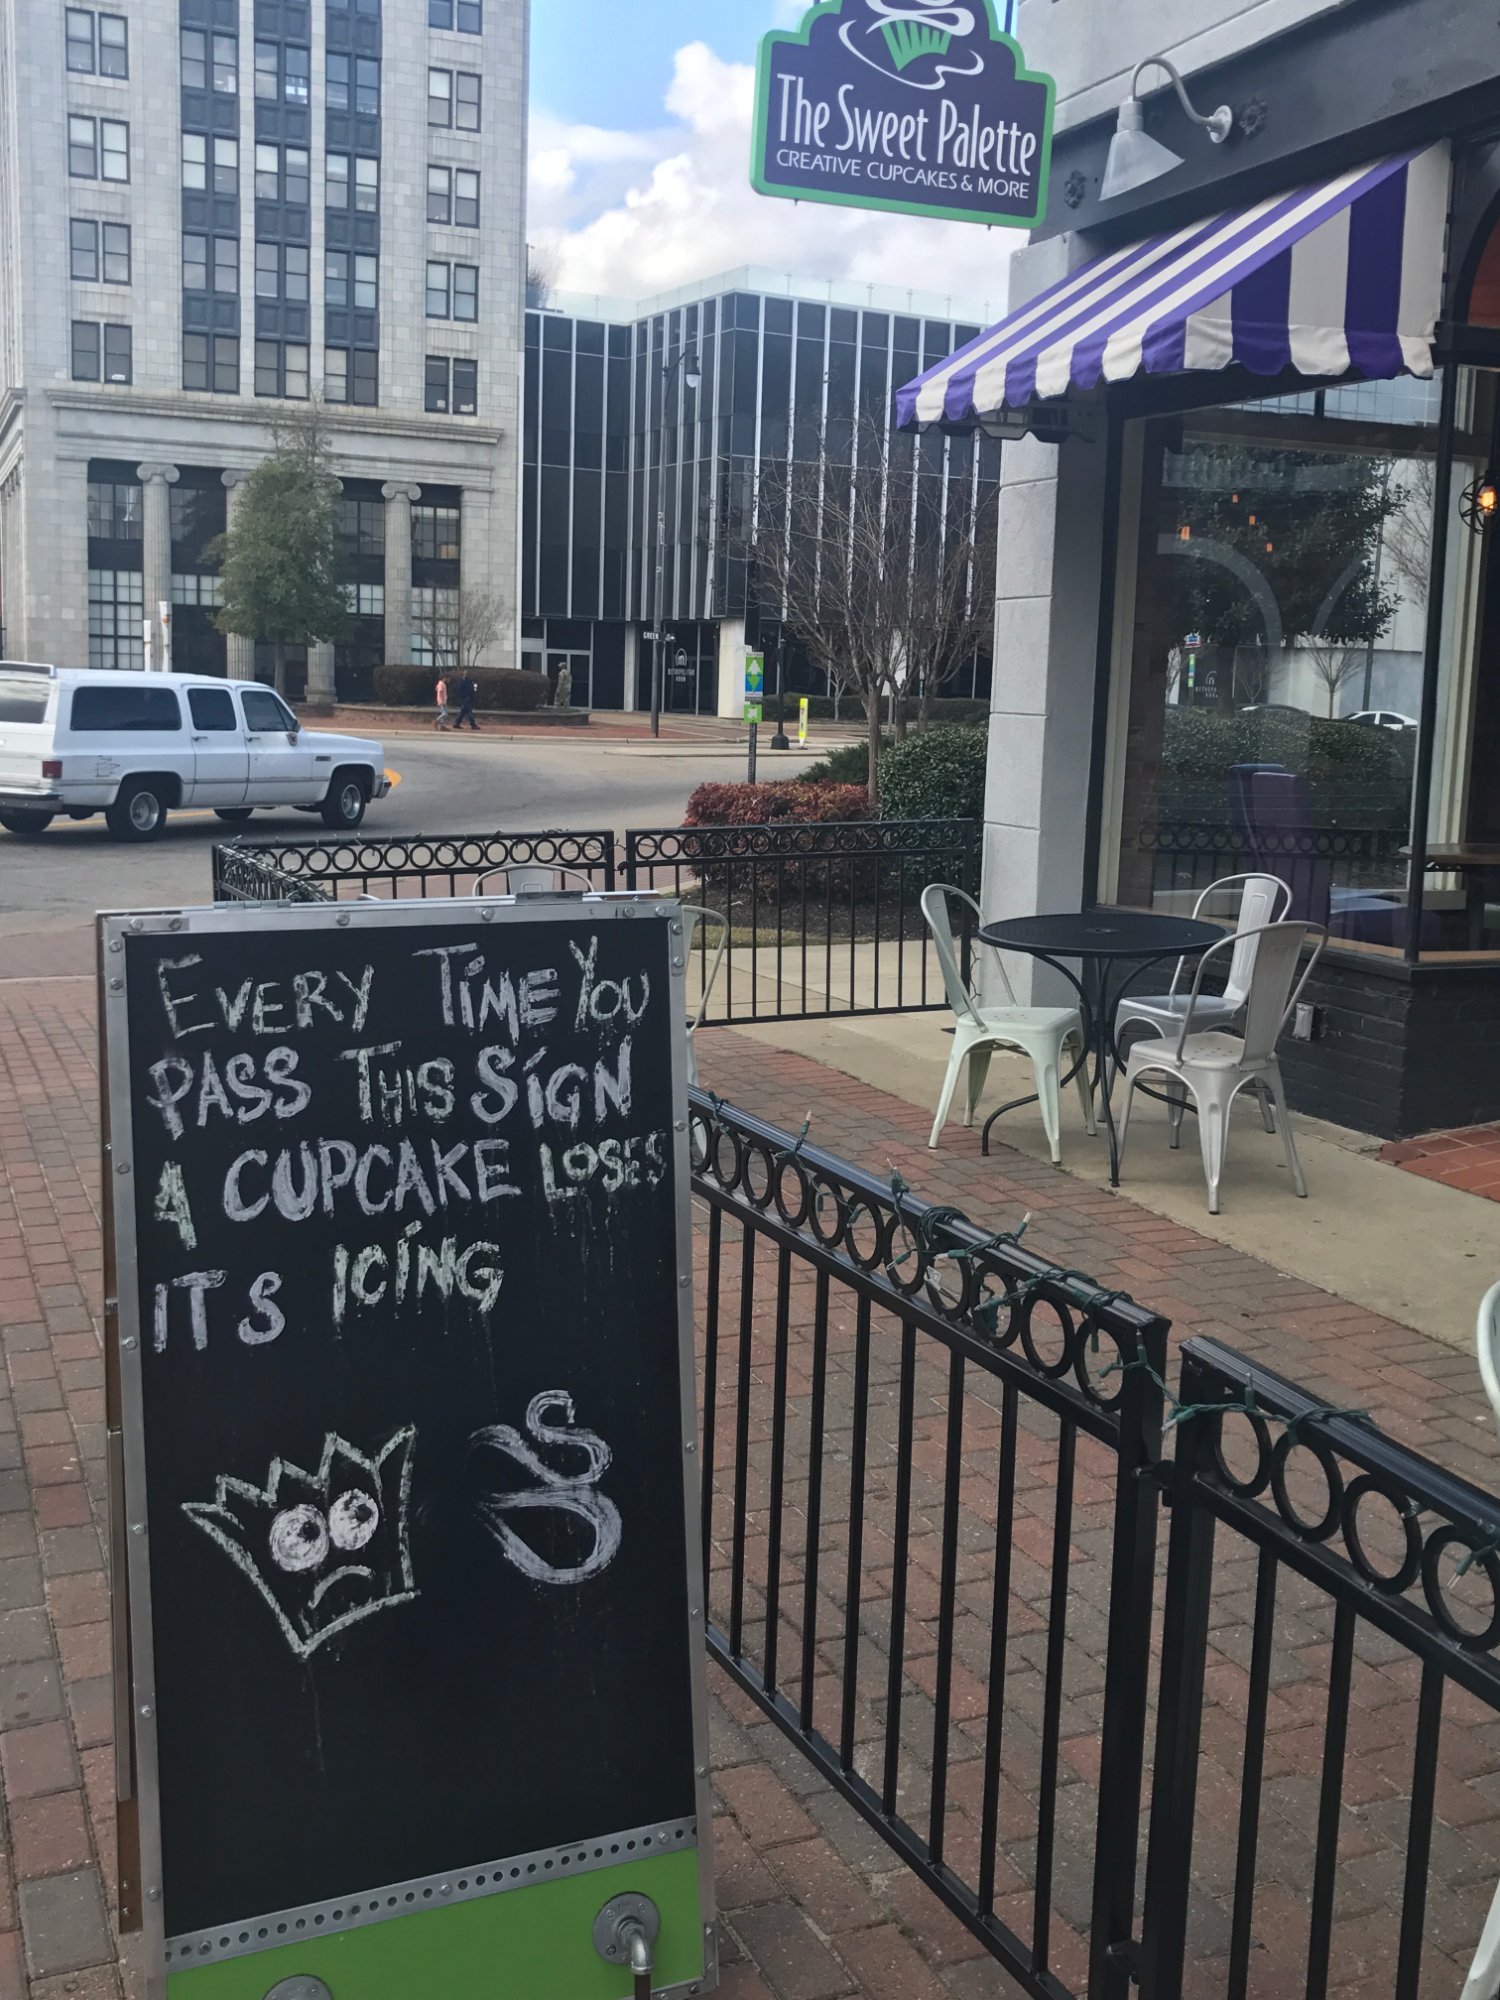 The Sweet Palette
CREATIVE CUPCAKES & MORE
GREEN
METROPOLITAN
ROOM
EVERY TIME YOU
PASS THIS SIGN
A CUPCAKE LOSES
ITS ICING